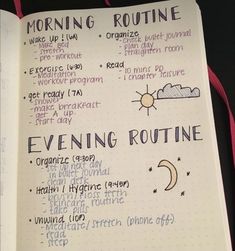 MORNING ROUTINE
• Wake up! (6A)
- Make bed
- stretch
- pre-workout
• Exercise (6:30)
- Meditation
- workout program
• get ready (7A)
- shower
- make breakfast
- get A up
- start day
• Organize
- check bullet journal
- plan day
- straighten room
• Read
- 10 mins PD
- 1 chapter leisure
EVENING ROUTINE
• Organize (9:30P)
- set up next day
in bullet journal
- clean desk
• Health / Hygeine (9:45P)
- brush/floss teeth
- skincare routine
- take pills
• Unwind (10P)
- Meditate/stretch (phone off)
- read
- sleep